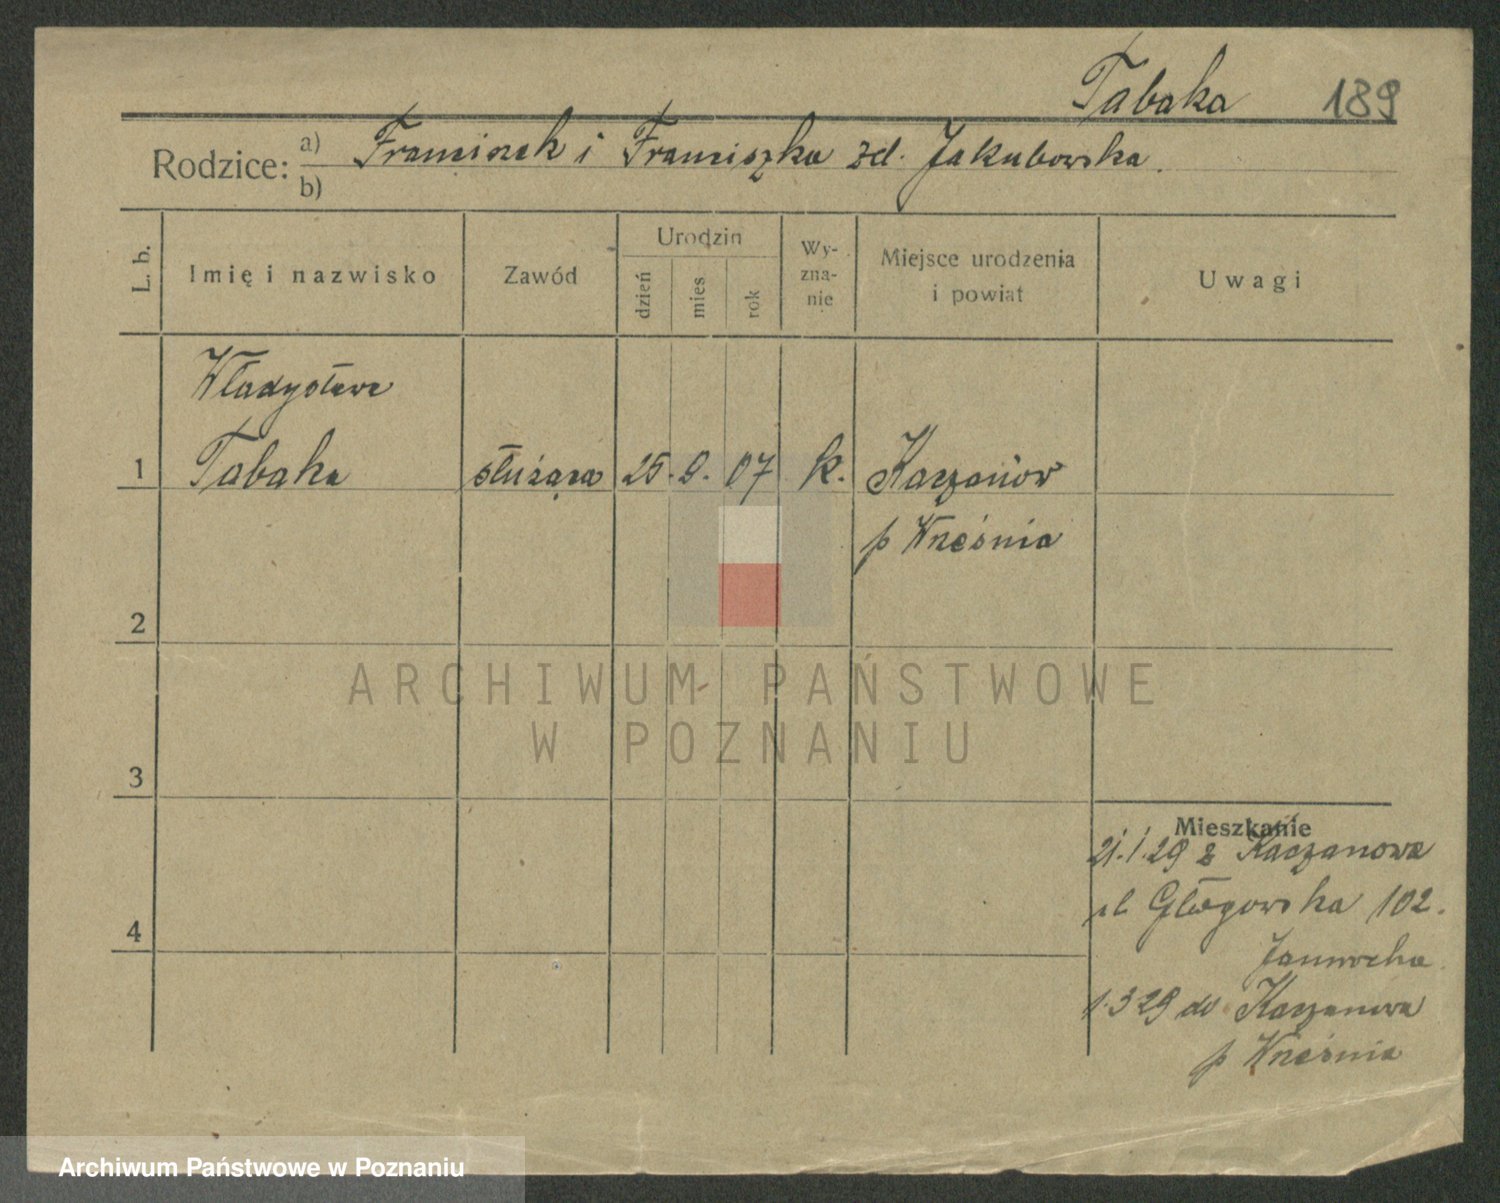 Tabaka 189
Rodzice: a) Franciszek i Franciszka zd. Jakubowska.
b)
L. b.
Imię i nazwisko
Zawód
Urodzin
dzień
mies
rok
Wy-
zna-
nie
Miejsce urodzenia
i powiat
Uwagi
Władysława
1 Tabaka służąca 25. 9. 07 k. Kaczanów
p Września
2
ARCHIWUM PAŃSTWOWE
W POZNANIU
3
Mieszkanie
21.1.29 z Kaczanowa
ul Głogowska 102.
4
1.3 29 do Kaczanowa
p Września
Archiwum Państwowe w Poznaniu